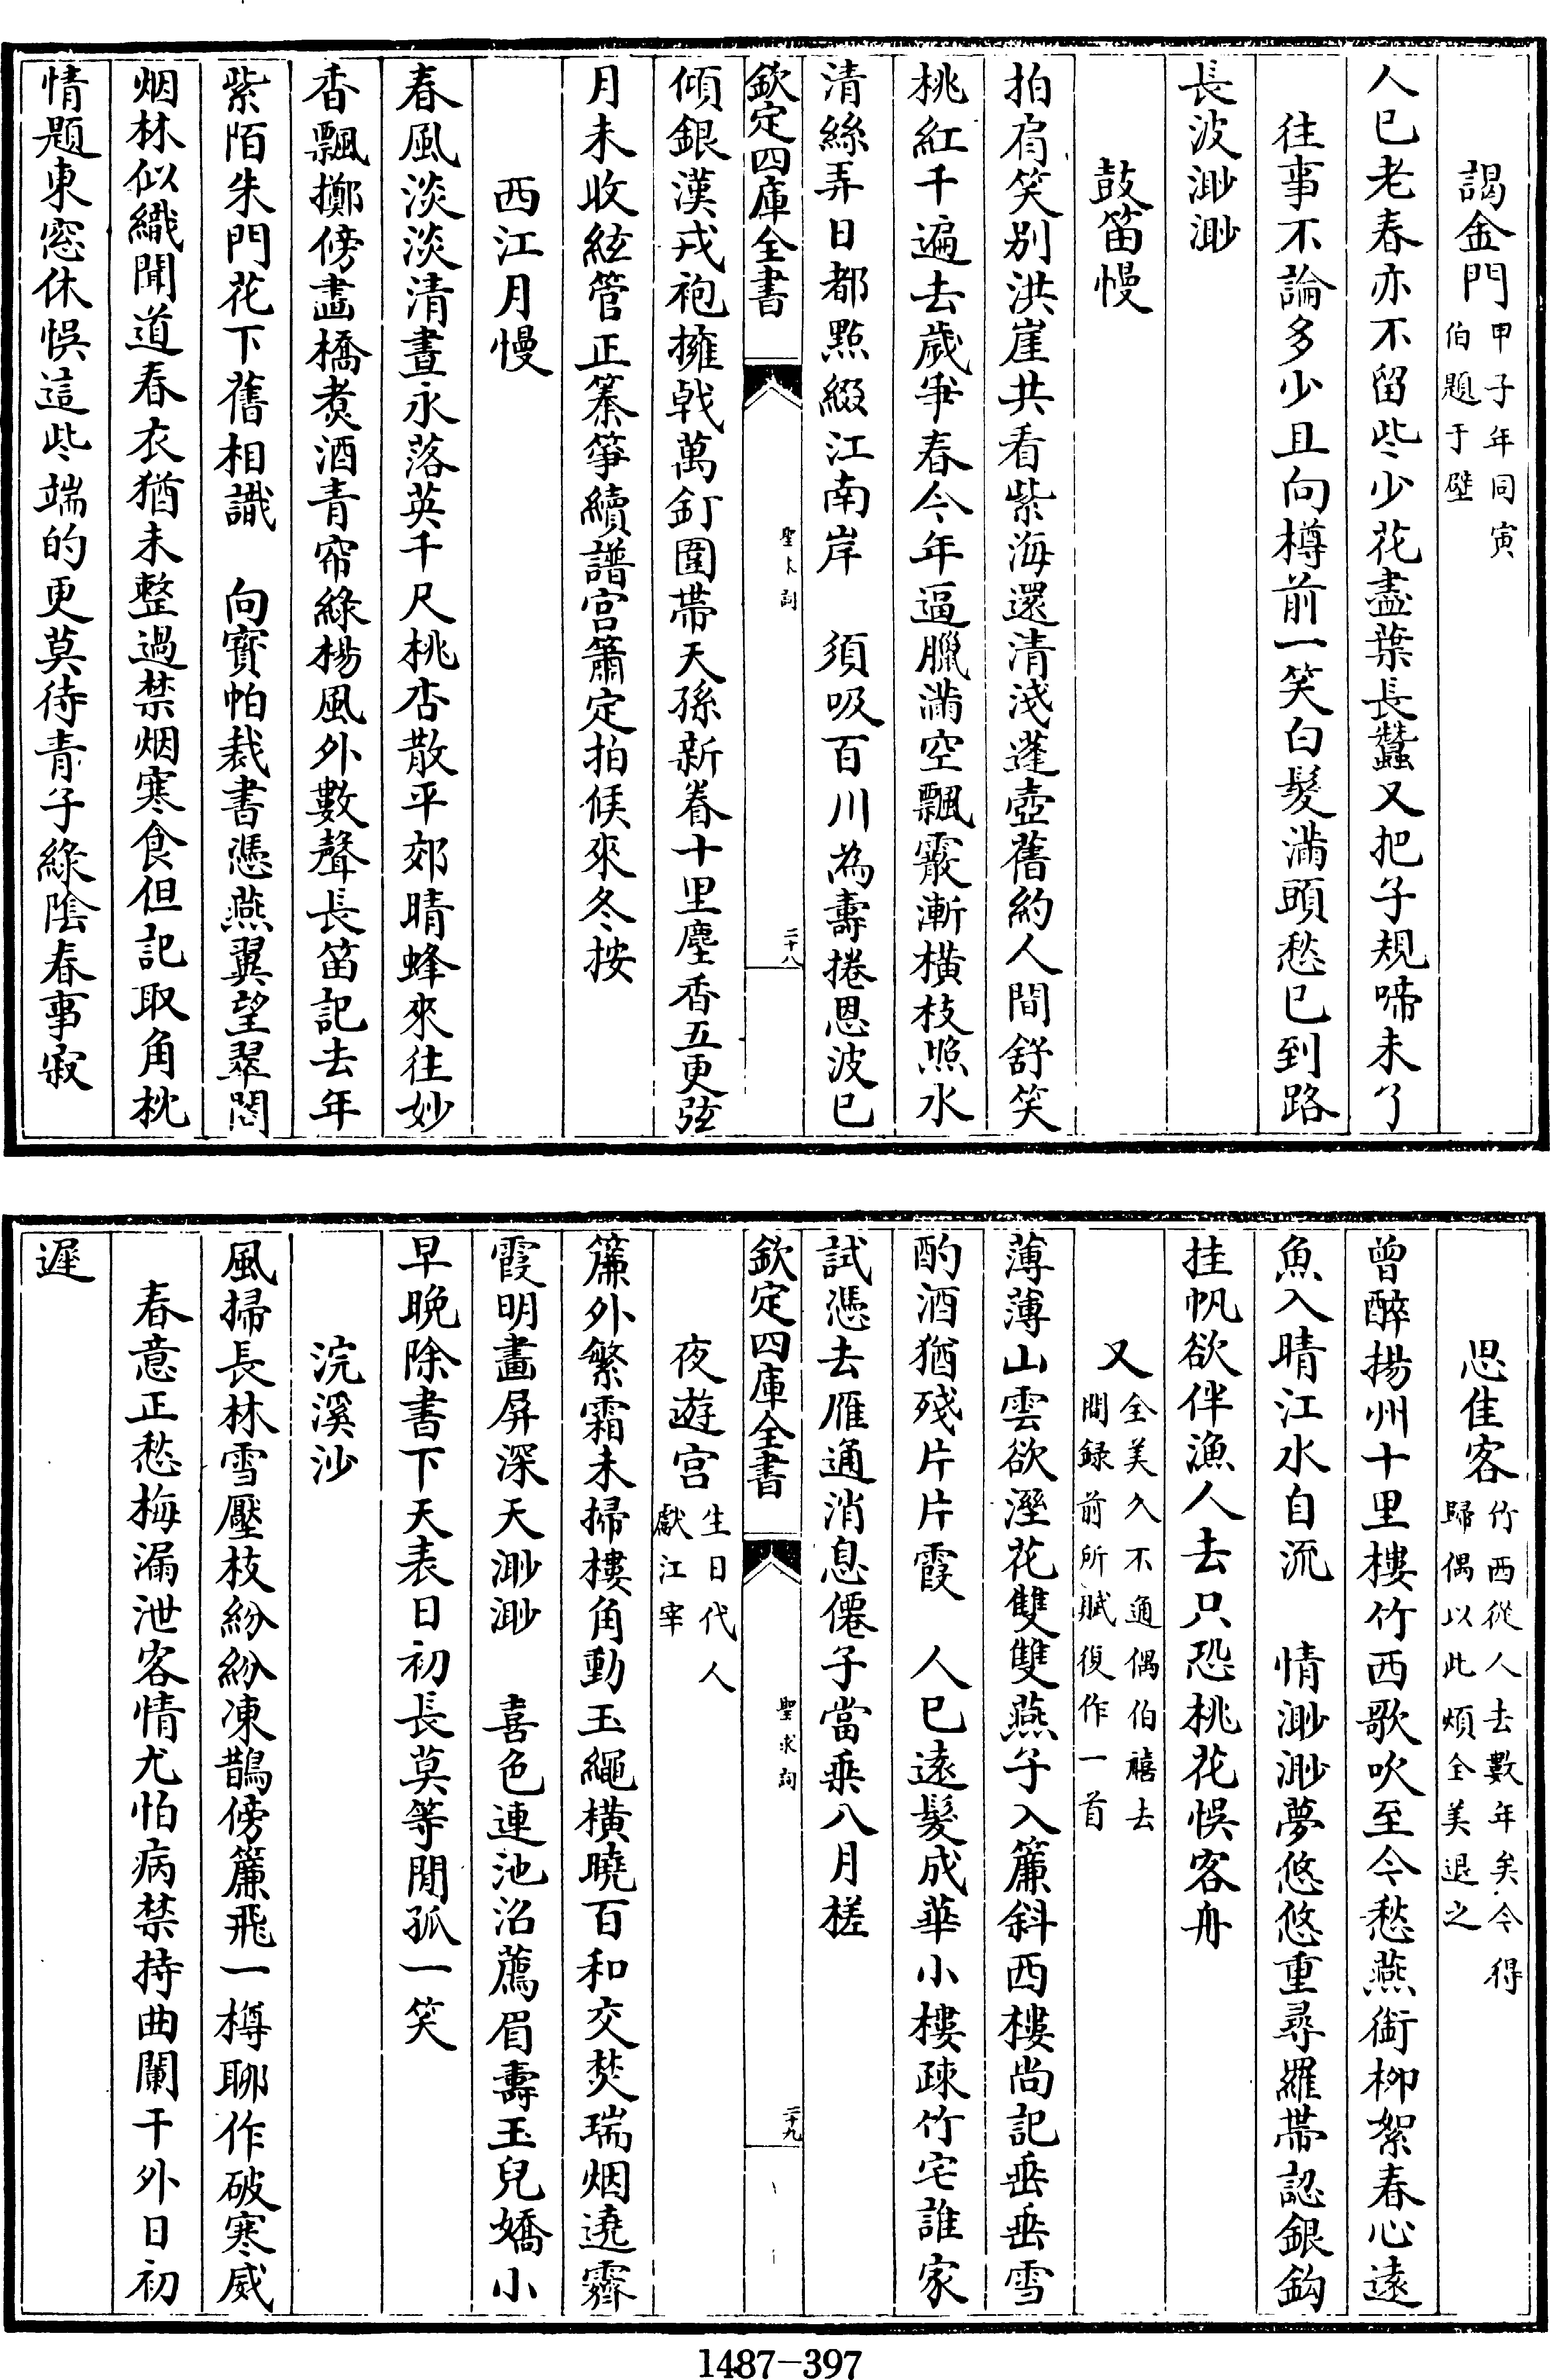 謁金門甲子年同寅伯題于壁
人已老春亦不留些少花盡葉長蠶又把子規啼未了
往事不論多少且向樽前一笑白髮滿頭愁已到路
長波渺渺
鼓笛慢
拍肩笑別洪崖共看紫海還清淺蓬壺舊約人間舒笑
桃紅千遍去歲爭春今年逼臘滿空飄霰漸橫枝照水
清絲弄日都㸃綴江南岸　須吸百川為壽捲恩波已
欽定四庫全書
聖求詞
二十八
傾銀漢戎袍擁戟萬釘圍帶天孫新眷十里塵香五更弦
月未收絃管正纂箏續譜宫簫定拍候來冬按
西江月慢
春風淡淡清晝永落英千尺桃杏散平郊晴蜂來往妙
香飄擲傍畫橋煑酒青帘綠楊風外數聲長笛記去年
紫陌朱門花下舊相識　向寳帕裁書憑燕翼望翠閣
烟林似織聞道春衣猶未整過禁烟寒食但記取角枕
情題東窓休悞這些端的更莫待青子綠陰春事寂
思佳客竹西從人去數年矣今得歸偶以此煩全美退之
曾醉揚州十里樓竹西歌吹至今愁燕銜柳絮春心逺
魚入晴江水自流　情渺渺夢悠悠重尋羅帶認銀鈎
挂帆欲伴漁人去只恐桃花悞客舟
又全美久不通偶伯禧去間録前所賦復作一首
薄薄山雲欲溼花雙雙燕子入簾斜西樓尚記垂垂雪
酌酒猶殘片片霞　人已逺髮成華小樓疎竹宅誰家
試憑去雁通消息僊子當乗八月槎
欽定四庫全書
聖求詞
二十九
夜遊宫生日代人獻江宰
簾外繁霜未掃樓角動玉繩橫曉百和交焚瑞烟遶霽
霞明畫屏深天渺渺　喜色連池沼薦眉壽玉兒嬌小
早晩除書下天表日初長莫等閒孤一笑
浣溪沙
風掃長林雪壓枝紛紛凍鵲傍簾飛一樽聊作破寒威
春意正愁梅漏泄客情尤怕病禁持曲闌干外日初
遲
1487-397